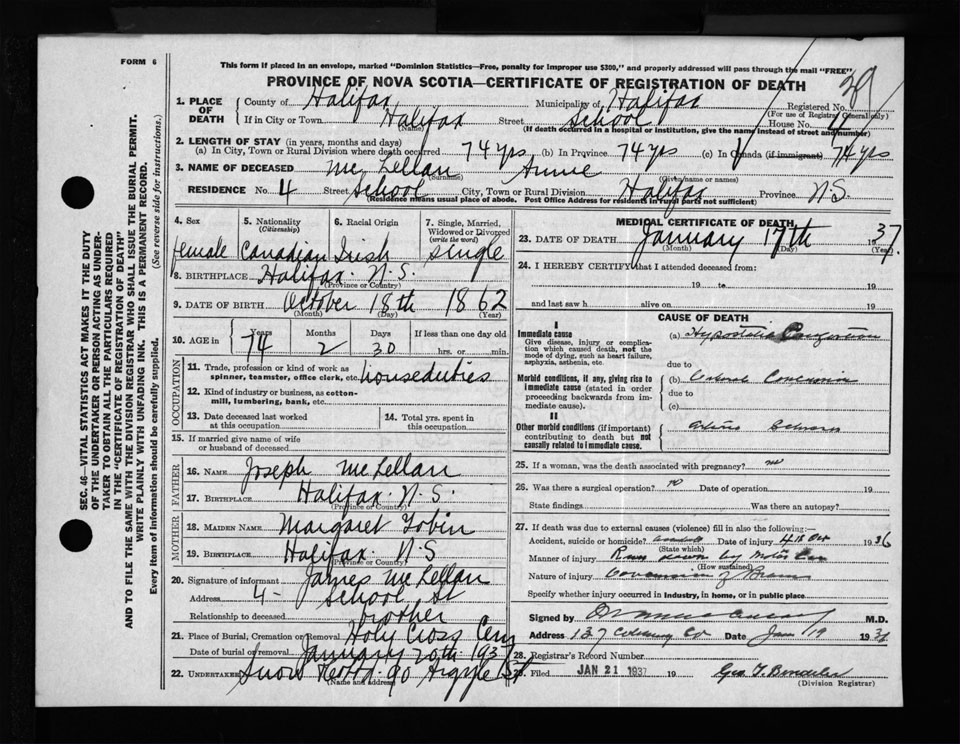 FORM 6
This form if placed in an envelope, marked "Dominion Statistics—Free, penalty for improper use $300," and properly addressed will pass through the mail "FREE"
PROVINCE OF NOVA SCOTIA—CERTIFICATE OF REGISTRATION OF DEATH
1. PLACE OF DEATH
County of Halifax Municipality of Halifax Registered No.
(For use of Registrar General only)
If in City or Town Halifax Street School House No. 4
(Name) (If death occurred in a hospital or institution, give the name instead of street and number)
2. LENGTH OF STAY (in years, months and days)
(a) In City, Town or Rural Division where death occurred 74 yrs (b) In Province 74 yrs (c) In Canada (if immigrant) 74 yrs
3. NAME OF DECEASED McLellan Annie
(Surname) (Given name or names)
RESIDENCE No. 4 Street School City, Town or Rural Division Halifax Province N.S.
(Residence means usual place of abode. Post Office Address for residents in rural parts not sufficient)
4. Sex
female
5. Nationality (Citizenship)
Canadian
6. Racial Origin
Irish
7. Single, Married, Widowed or Divorced (write the word)
single
8. BIRTHPLACE Halifax. N.S.
(Province or Country)
9. DATE OF BIRTH October 18th 1862
(Month) (Day) (Year)
10. AGE in
Years Months Days If less than one day old
74 2 30 hrs. or min.
OCCUPATION
11. Trade, profession or kind of work as spinner, teamster, office clerk, etc. houseduties
12. Kind of industry or business, as cotton-mill, lumbering, bank, etc.
13. Date deceased last worked at this occupation
14. Total yrs. spent in this occupation
15. If married give name of wife or husband of deceased
FATHER
16. NAME Joseph McLellan
17. BIRTHPLACE Halifax. N.S.
(Province or Country)
MOTHER
18. MAIDEN NAME Margaret Tobin
19. BIRTHPLACE Halifax. N.S
(Province or Country)
20. Signature of informant James McLellan
Address 4 - School St
Relationship to deceased brother
21. Place of Burial, Cremation or Removal Holy Cross Cem
Date of burial or removal January 20th 1937
22. UNDERTAKER Snow 90 Argyle St
(Name and address)
MEDICAL CERTIFICATE OF DEATH
23. DATE OF DEATH January 17th 1937
(Month) (Day) (Year)
24. I HEREBY CERTIFY that I attended deceased from:
19 to 19
and last saw h alive on 19
CAUSE OF DEATH
I
Immediate cause
Give disease, injury or complication which caused death, not the mode of dying, such as heart failure, asphyxia, asthenia, etc.
(a) Hypostatic Congestion
due to
Morbid conditions, if any, giving rise to immediate cause (stated in order proceeding backwards from immediate cause).
(b) Cerebral Concussion
due to
(c)
II
Other morbid conditions (if important) contributing to death but not causally related to immediate cause.
25. If a woman, was the death associated with pregnancy? no
26. Was there a surgical operation? no Date of operation 19
State findings Was there an autopsy?
27. If death was due to external causes (violence) fill in also the following:—
Accident, suicide or homicide? Date of injury 1936
(State which)
Manner of injury Run down by Motor Car
(How sustained)
Nature of injury Concussion of Brain
Specify whether injury occurred in Industry, in home, or in public place
Signed by M.D.
Address 137 Date Jan 19 193
28. Registrar's Record Number
29. Filed JAN 21 1937 19 Geo.
(Division Registrar)
SEC. 46—VITAL STATISTICS ACT MAKES IT THE DUTY
OF THE UNDERTAKER OR PERSON ACTING AS UNDER-
TAKER TO OBTAIN ALL THE PARTICULARS REQUIRED
IN THE "CERTIFICATE OF REGISTRATION OF DEATH"
AND TO FILE THE SAME WITH THE DIVISION REGISTRAR WHO SHALL ISSUE THE BURIAL PERMIT.
WRITE PLAINLY WITH UNFADING INK. THIS IS A PERMANENT RECORD.
Every item of information should be carefully supplied. (See reverse side for instructions.)